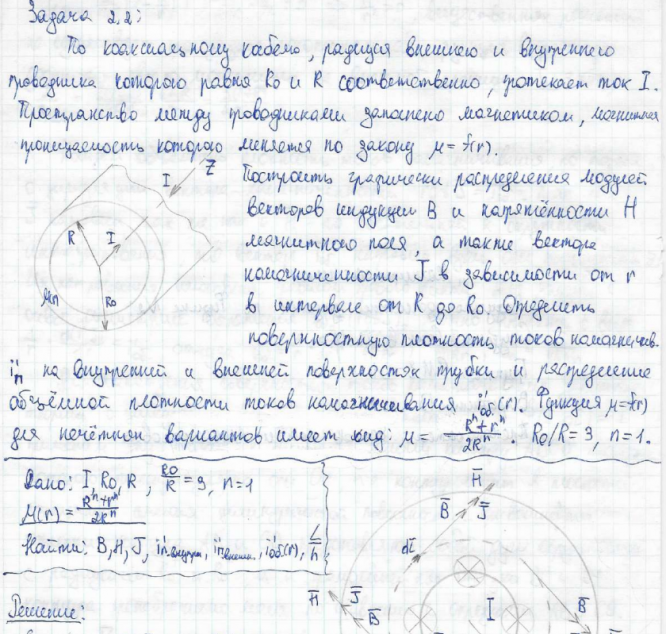 Задача 2.2:
По коаксиальному кабелю, радиусы внешнего и внутреннего
проводника которого равна R₀ и R соответственно, протекает ток I.
Пространство между проводниками заполнено магнетиком, магнитная
проницаемость которого меняется по закону μ=f(r)
I Z
Построить графически распределения модулей
R I
векторов индукции B и напряжённости H
магнитного поля, а также вектора
намагниченности J в зависимости от r
μn R₀
в интервале от R до R₀. Определить
поверхностную плотность токов намагничив.
i'п на внутренней и внешней поверхностях трубки и распределение
объёмной плотности токов намагничивания i'об(r). Функция μ=f(r)
для нечётных вариантов имеет вид: μ = (Rⁿ+rⁿ)/(2Rⁿ). R₀/R=3, n=1.
Дано: I, R₀, R, R₀/R=3, n=1
μ(r)=(Rⁿ+rⁿ)/(2Rⁿ)
Найти: B, H, J, i'п внутр, i'п внешн, i'об(r), L/h
H̄
B̄ J̄
dl̄
H̄ J̄ B̄
I B̄
Решение: